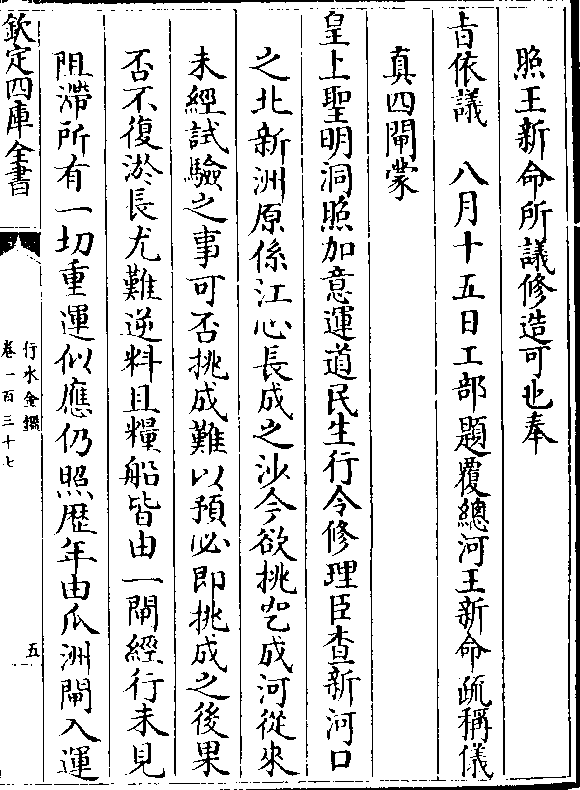 照王新命所議修造可也奉
旨依議　八月十五日工部題覆總河王新命疏稱儀
真四閘蒙
皇上聖明洞照加意運道民生行令修理臣查新河口
之北新洲原係江心長成之沙今欲挑空成河從來
未經試驗之事可否挑成難以預必即挑成之後果
否不復淤長尤難逆料且糧船皆由一閘經行未見
阻滯所有一切重運似應仍照歴年由瓜洲閘入運
欽定四庫全書
行水金鑑
卷一百三十七
五